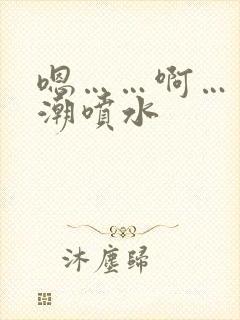 嗯……啊…
潮喷水
沐塵歸